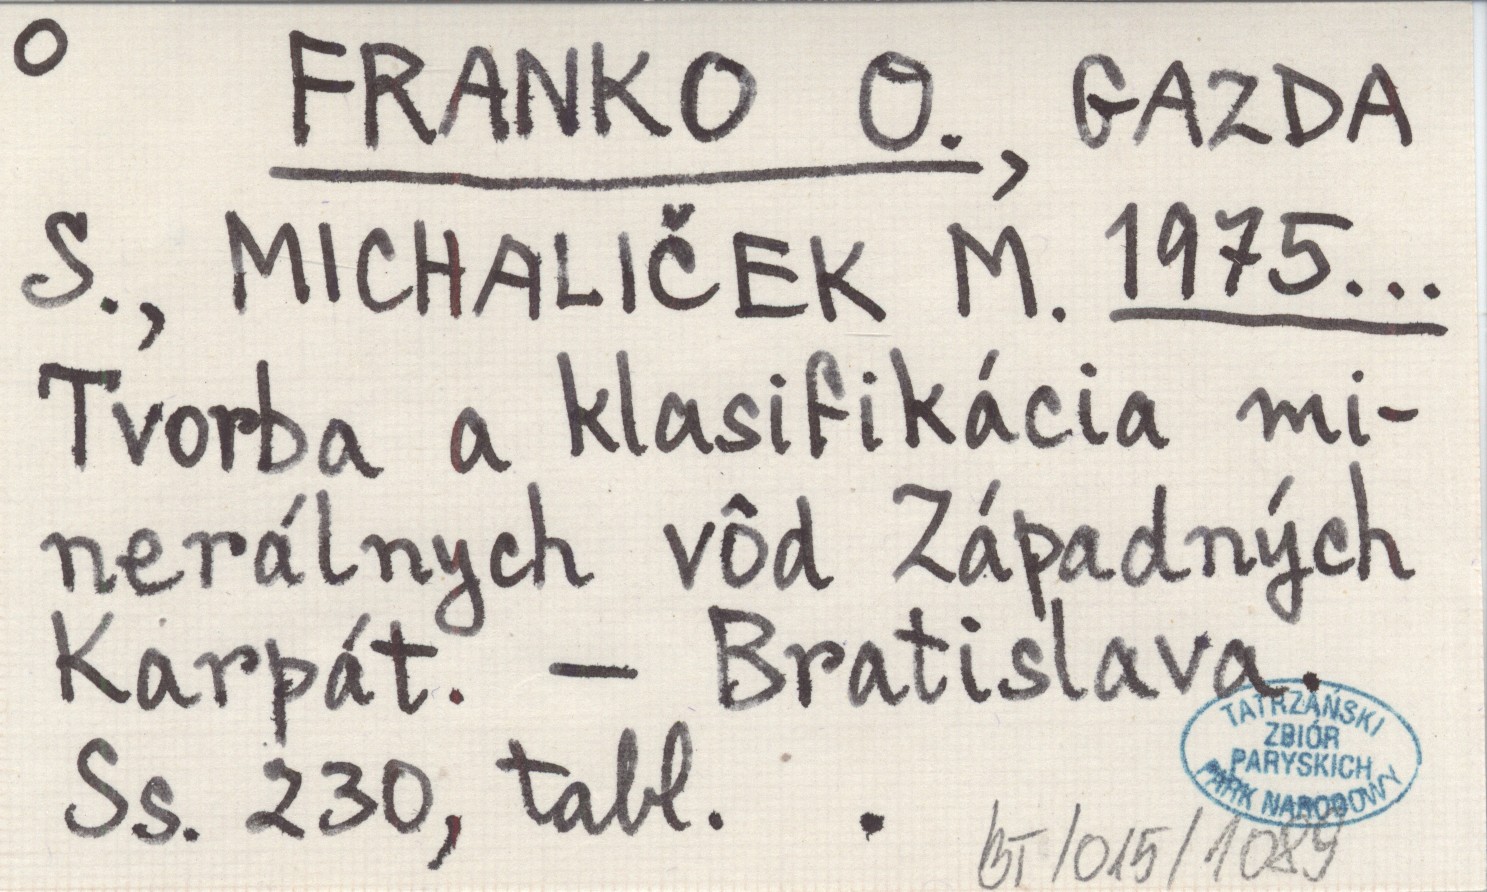 O
FRANKO O., GAZDA
S., MICHALIČEK M. 1975...
Tvorba a klasifikácia mi-
nerálnych vôd Západných
Karpát. – Bratislava.
Ss. 230, tabl. .
TATRZAŃSKI
ZBIÓR
PARYSKICH
PARK NARODOWY
BT/015/1089